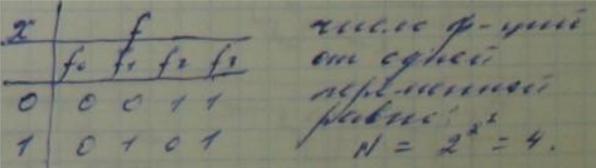 x f
f₀ f₁ f₂ f₃
0 0 0 1 1
1 0 1 0 1
число ф-ций
от одной
переменной
равно:
N = 2^2^1 = 4.